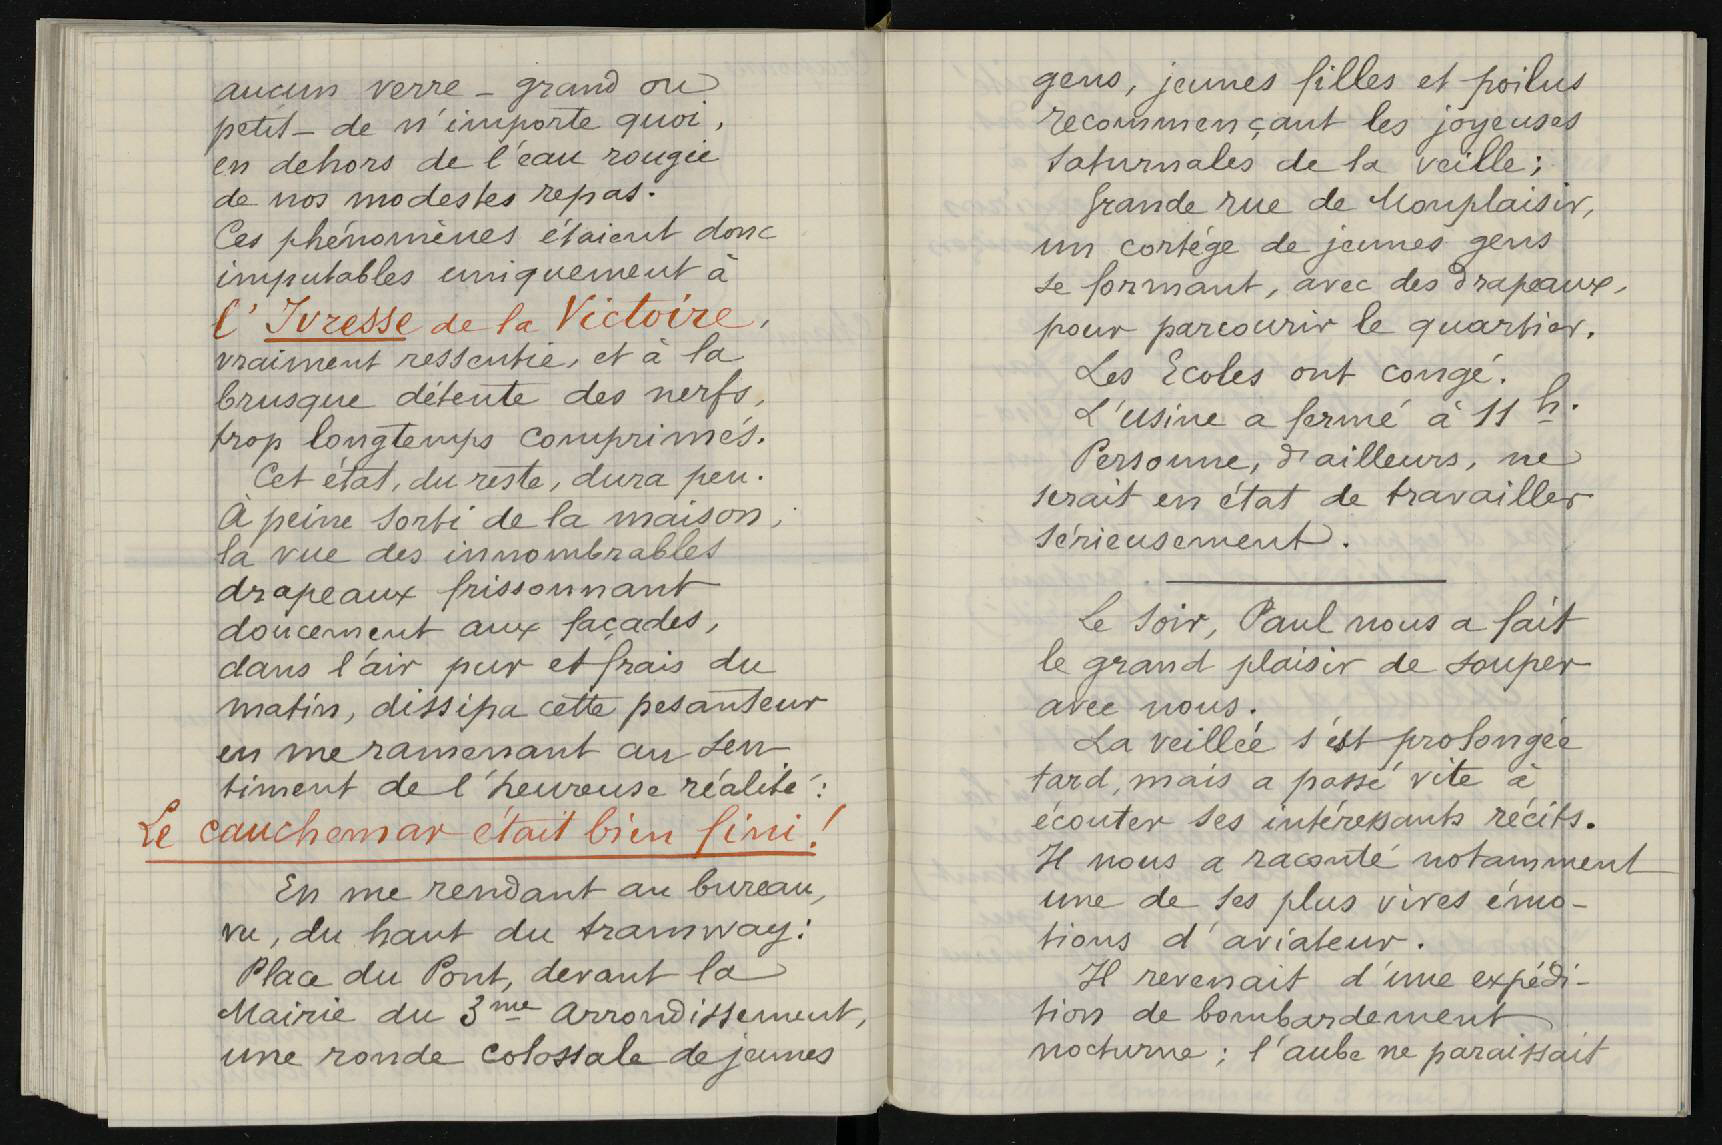 aucun verre – grand ou
petit – de n'importe quoi,
en dehors de l'eau rougie
de nos modestes repas.
Ces phénomènes étaient donc
imputables uniquement à
l'Ivresse de la Victoire,
vraiment ressentie, et à la
brusque détente des nerfs,
trop longtemps comprimés.
Cet état, du reste, dura peu.
À peine sorti de la maison,
la vue des innombrables
drapeaux frissonnant
doucement aux façades,
dans l'air pur et frais du
matin, dissipa cette pesanteur
en me ramenant au sen
timent de l'heureuse réalité :
Le cauchemar était bien fini !
En me rendant au bureau,
vu, du haut du tramway :
Place du Pont, devant la
Mairie du 3me Arrondissement,
une ronde colossale de jeunes
gens, jeunes filles et poilus
recommençant les joyeuses
saturnales de la veille ;
Grande rue de Monplaisir,
un cortège de jeunes gens
se formant, avec des drapeaux,
pour parcourir le quartier.
Les Ecoles ont congé.
L'usine a fermé à 11 h.
Personne, d'ailleurs, ne
serait en état de travailler
sérieusement.
Le soir, Paul nous a fait
le grand plaisir de souper
avec nous.
La veillée s'est prolongée
tard, mais a passé vite à
écouter ses intéressants récits.
Il nous a raconté notamment
une de ses plus vives émo-
tions d'aviateur.
Il revenait d'une expédi-
tion de bombardement
nocturne ; l'aube ne paraissait